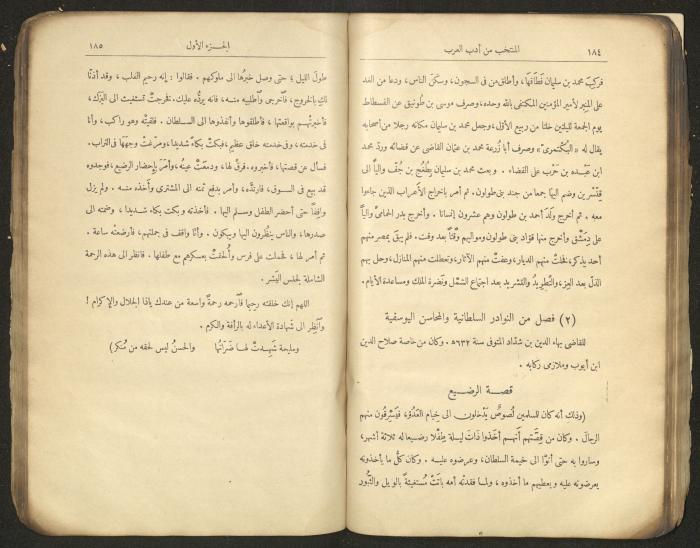 ١٨٤
المنتخب من أدب العرب
فركب محمد بن سليمان فَطَافَها، وأطلق من فى السجون، وسكَّن الناس، ودعا من الغد
على المنبر لأمير المؤمنين المكتفى بالله وحده، وصرف موسى بن طونيق عن الفسطاط
يوم الجمعة لليلتين خلتا من ربيع الأول، وجعل محمد بن سليمان مكانه رجلا من أصحابه
يقال له «البكتمرى» وصرف أبا زُرعة محمد بن عثمان القاضى عن قضائه وردّ محمد
ابن عَبْده بن حَرْب على القضاء . وبعث محمد بن سليمان بِطُغْج بن جُفّ والياً الى
قِنَّسْرين وضم اليها جمعا من جند بنى طولون . ثم أمر بإخراج الأعراب الذين جاءوا
معه . ثم أخرج ولَد أحمد بن طولون وهم عشرون إنسانا . وأخرج بدر الحَمامىّ والياً
على دمَشْق وأخرج منها قوّاد بنى طولون ومواليهم وقْتاً بعد وقت . فلم يبق بمصر منهم
أحد يذكر، فخلتْ منهم الديار، وعفتْ منهم الآثار، وتعطلت منهم المنازل، وحلّ بهم
الذلّ بعد العِز، والتَّطريدُ والتَّشريد بعد اجتماع الشَّمْل ونَضرة الملك ومساعدة الأيام.
(٢) فصل من النوادر السلطانية والمحاسن اليوسفية
للقاضى بهاء الدين بن شدّاد المتوفى سنة ٦٣٢ه . وكان من خاصة صلاح الدين
ابن أيوب وملازمى ركابه .
قصة الرضيع
(وذلك أنه كان للمسلمين لُصوصٌ يَدْخلون الى خيام العَدُوّ، فيَسْرِقون منهم
الرجالَ . وكان من قصّتهم أنهم أخذوا ذات ليلة طِفْلا رضيعا له ثلاثة أشهر،
وساروا به حتى أتوْا الى خيمة السلطان، وعرضوه عليه . وكان كلُّ ما يأخذونه
يعرضونه عليه ويعطيهم ما أخذوه ، ولما فقدتْه أمه باتتْ مُستغيثةً بالويل والثُّبور
الجزء الأول
١٨٥
طولَ الليل ؛ حتى وصل خبرُها الى ملوكهم . فقالوا : إنه رحيم القلب ، وقد أذنّا
لكِ بالخروج، فاخرجى واطلبيه منه، فانه يردُّه عليك. فخرجتْ تستغيث الى اليَزَك،
فأخبرتْهم بواقعتها ، فأطلقوها وأنفذوها الى السلطان . فلقيَتْه وهو راكب، وأنا
فى خدمته ، وفى خدمته خلق عظيم، فبكتْ بكاءً شديدا، ومرّغتْ وجهَها فى التراب.
فسأل عن قصتها، فأخبروه. فرقَّ لها، ودمعَتْ عينُه، وأمَرَ بإحضار الرضيع، فوجدوه
قد بيع فى السوق، فأمر بدفع ثمنه الى المشترى وأخذه منه . ولم يزل
واقِفاً حتى أحضر الطفل وسلم اليها . فأخذته وبكت بكاء شديدا ، وضمته الى
صدرها، والناس ينظُرون اليها ويبكون . وأنا واقف فى جملتهم، فأرضعتْه ساعة .
ثم أمر لها ، فحملت على فرس وأُلحقتْ بعسكرهم مع طفلها . فانظر الى هذه الرحمة
الشاملة لجنس البَشر .
اللهم إنك خلقته رحيما فارحمه رحمةً واسعة من عندك ياذا الجلال والإكرام !
وانظر الى شَهادة الأعداء له بالرأفة والكرم .
ومليحة شَهِدتْ لها ضَرّاتُها والحسنُ ليس لحقه من مُنكر)